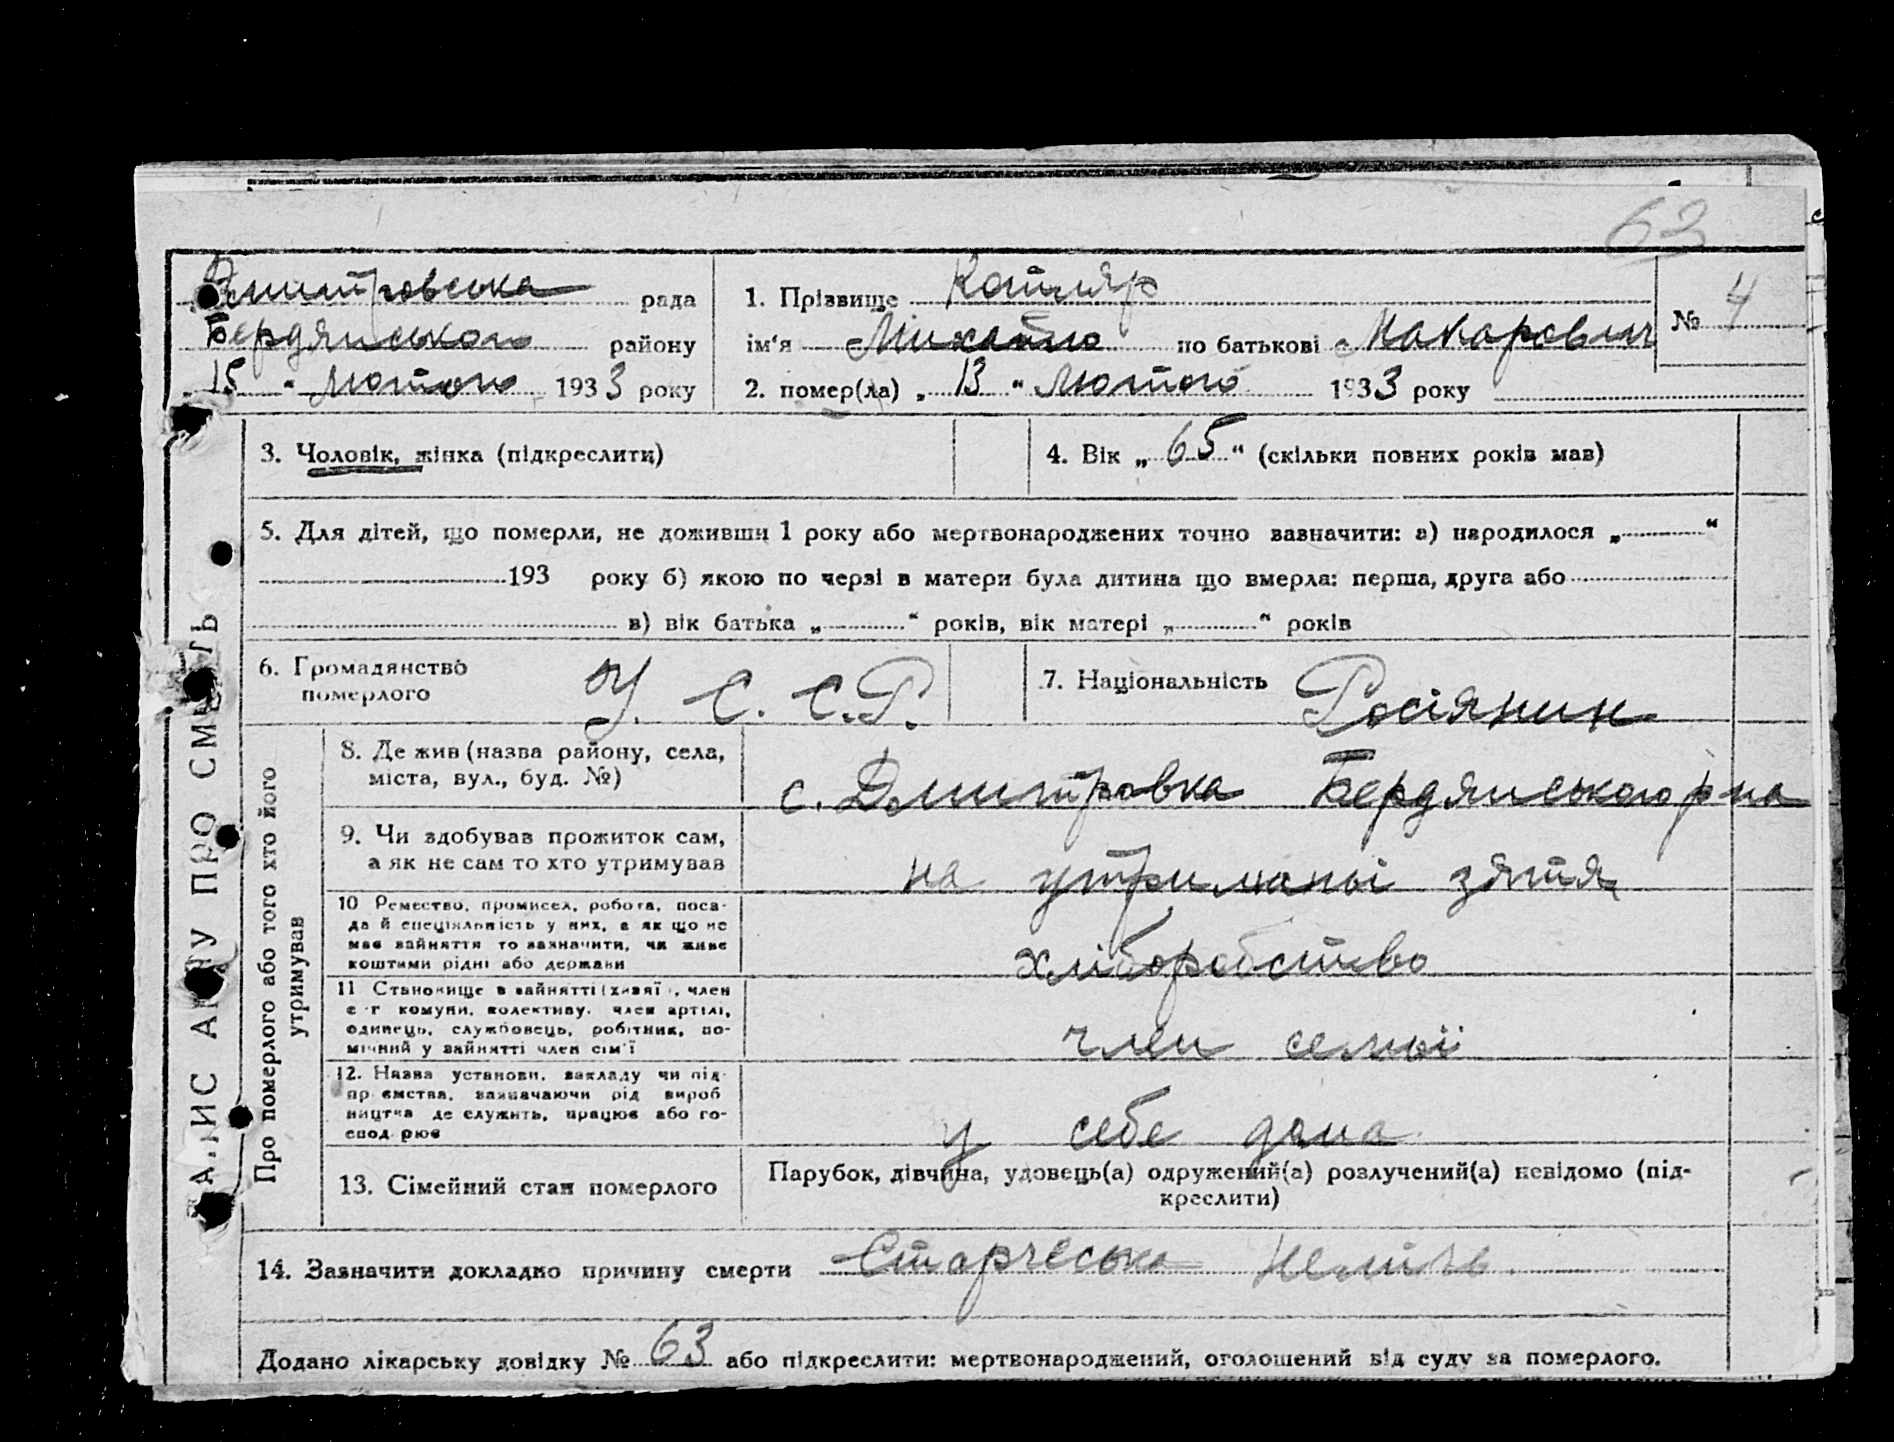 63
Дмитровська рада
Бердянського району
„15“ Лютого 1933 року
1. Прізвище Котляр
ім'я Михайло по батькові Макарович
2. помер(ла) „13“ Лютого 1933 року
№ 4
3. Чоловік, жінка (підкреслити)
4. Вік „65“ (скільки повних років мав)
5. Для дітей, що померли, не доживши 1 року або мертвонароджених точно зазначити: а) народилося „ “
193 року б) якою по черзі в матери була дитина що вмерла: перша, друга або
в) вік батька „ “ років, вік матері „ “ років
6. Громадянство
померлого
У. С. С.Р.
7. Національність Росіянин
8. Де жив (назва району, села,
міста, вул., буд. №)
с. Дмитровка Бердянського р-на
9. Чи здобував прожиток сам,
а як не сам то хто утримував
на утриманьі зятя
10 Ремество, промисел, робота, поса-
да й спеціяльність у них, а як що не
має зайняття то зазначити, чи живе
коштами рідні або держави
хліборобство
11 Становище в зайнятті (хазяї , член
с-г комуни, колективу, член артілі,
одинець, службовець, робітник, по-
мічний у зайнятті член сім'ї
член семьї
12. Назва установи, закладу чи під-
пр ємства, зазначаючи рід вироб
ництва де служить, працює або го-
спод рює
у себе дома
13. Сімейний стан померлого
Парубок, дівчина, удовець(а) одружений(а) розлучений(а) невідомо (під-
креслити)
14. Зазначити докладно причину смерти Старческа неміч.
Додано лікарську довідку № 63 або підкреслити: мертвонароджений, оголошений від суду за померлого.
Про померлого або того хто його
утримував
ЗАПИС АКТУ ПРО СМЕРТЬ